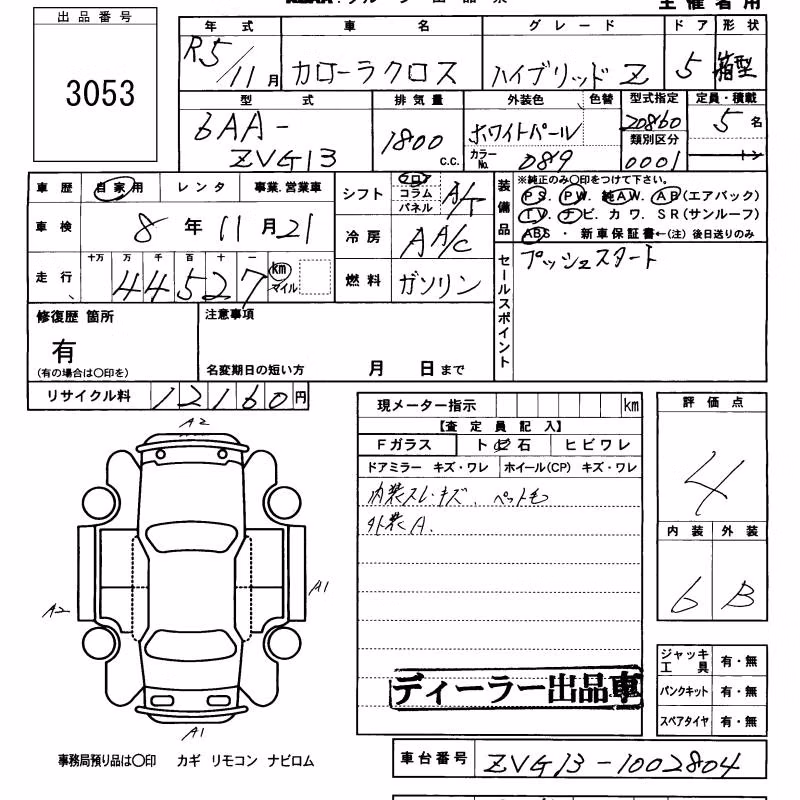 出品番号
3053
年式 車名 グレード ドア 形状
R5/11月 カローラクロス ハイブリッド Z 5 箱型
型式 排気量 外装色 色替 型式指定 定員・積載
6AA-ZVG13 1800c.c. ホワイトパール 20860 5名
カラーNo. 089 類別区分 0001 トン
車歴 自家用 レンタ 事業.営業車
車検 8年11月21
走行 十万 万 千 百 十 一
44527 km マイル
シフト フロア コラム パネル A/T
冷房 AA/C
燃料 ガソリン
装備品
※純正のみ〇印をつけて下さい。
PS. PW. 純AW. AB(エアバック)
TV. ナビ. カワ. SR(サンルーフ)
ABS ・ 新車保証書←(注) 後日送りのみ
セールスポイント
プッシュスタート
修復歴 箇所
有
(有の場合は〇印を)
注意事項
名変期日の短い方 月 日まで
リサイクル料 12160円
現メーター指示 km
【査定員記入】
Fガラス ト 石 ヒビワレ
ドアミラー キズ・ワレ ホイール(CP) キズ・ワレ
内装スレ・キズ、ペット毛
外装A.
ディーラー出品車
評価点
4
内装 外装
6 B
A2
A2
A1
A1
ジャッキ工具 有・無
パンクキット 有・無
スペアタイヤ 有・無
事務局預り品は〇印 カギ リモコン ナビロム
車台番号 ZVG13-1002804